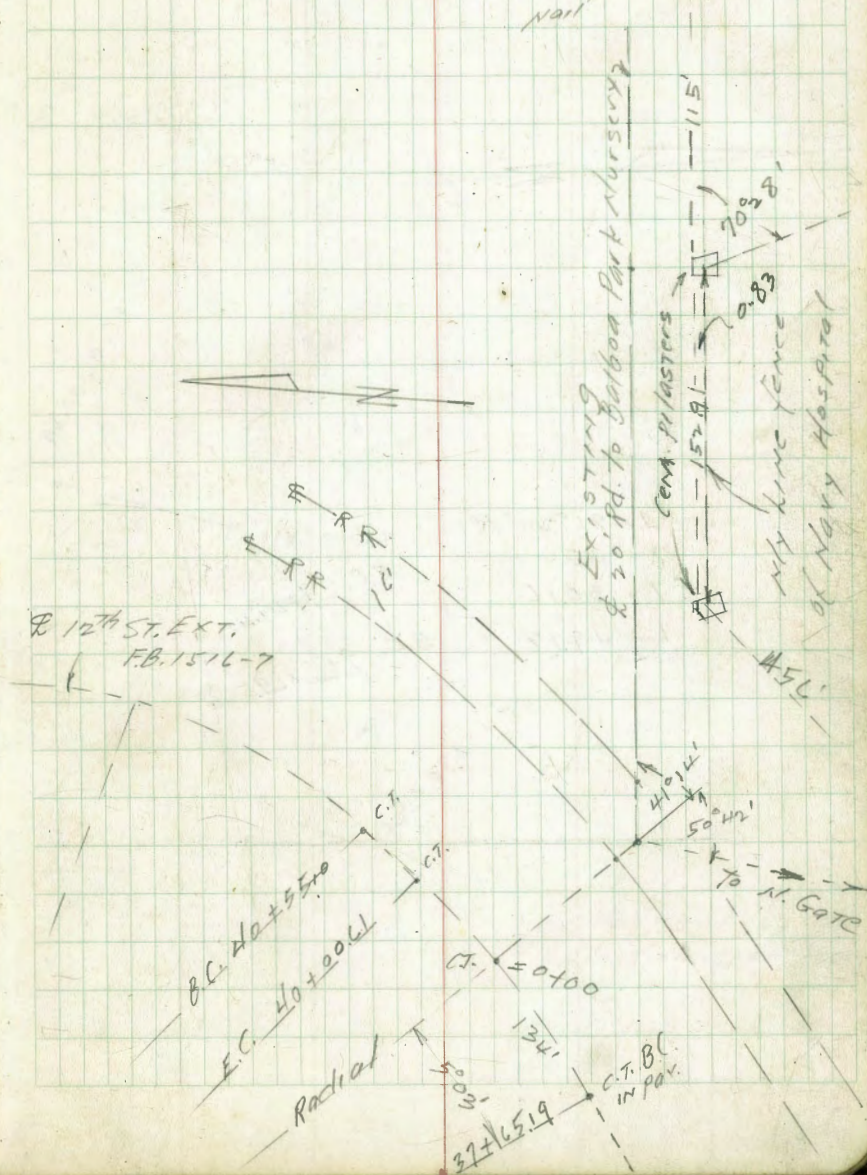 Nail
EXISTING
℄ 20' Rd. to Balboa Park Nursery
115'
70°28'
Cem. Pilasters
0.83
N'ly Line Fence
of Navy Hospital
R R
R R
16'
℄ 12th ST. EXT.
F.B. 1516-7
41°14'
50°42'
To N. Gate
C.T.
C.T.
B.C. 40+55.0
E.C. 40+00.61
C.T. = 0+00
134'
Radial
5°03'
C.T. B.C.
IN Pav.
37+65.19